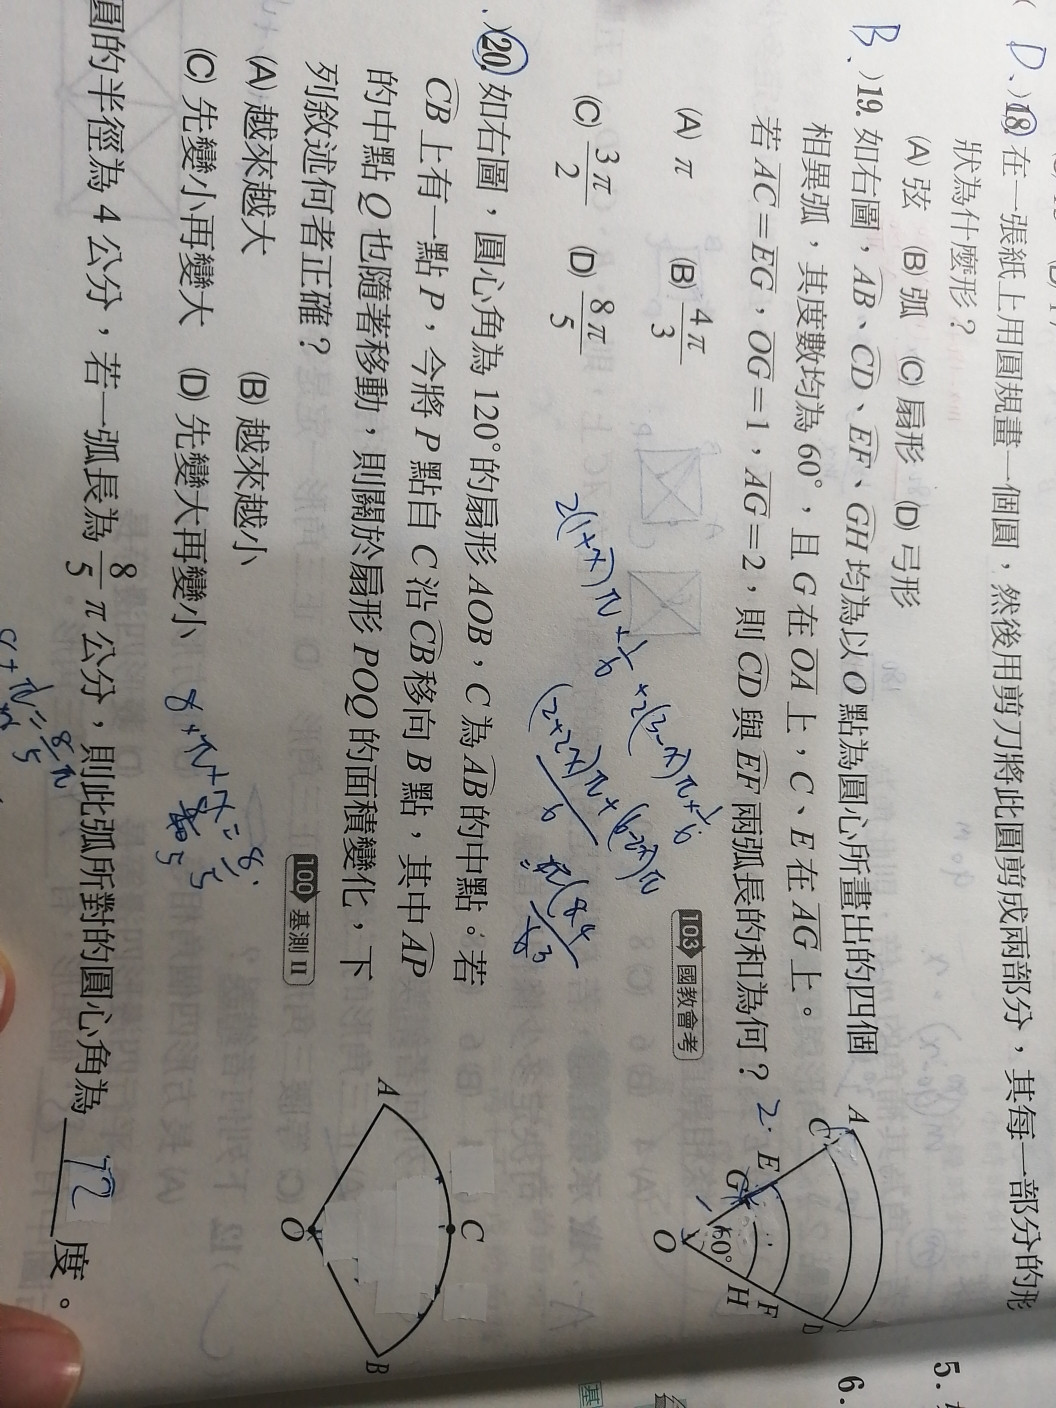 D、)18. 在一張紙上用圓規畫一個圓，然後用剪刀將此圓剪成兩部分，其每一部分的形
狀為什麼形？
(A) 弦 (B) 弧 (C) 扇形 (D) 弓形
B、)19. 如右圖，AB、CD、EF、GH 均為以 O 點為圓心所畫出的四個
相異弧，其度數均為 60°，且 G 在 OA 上，C、E 在 AG 上。
若 AC=EG，OG=1，AG=2，則 CD 與 EF 兩弧長的和為何？
(A) π (B) 4π/3
(C) 3π/2 (D) 8π/5
103 國教會考
A
C
E
G
O
60°
H
F
D
)20. 如右圖，圓心角為 120°的扇形 AOB，C 為 AB 的中點。若
CB 上有一點 P，今將 P 點自 C 沿 CB 移向 B 點，其中 AP
的中點 Q 也隨著移動，則關於扇形 POQ 的面積變化，下
列敘述何者正確？
100 基測 II
(A) 越來越大 (B) 越來越小
(C) 先變小再變大 (D) 先變大再變小
A
C
O
B
圓的半徑為 4 公分，若一弧長為 8/5 π 公分，則此弧所對的圓心角為 72 度。
5.
6.
基